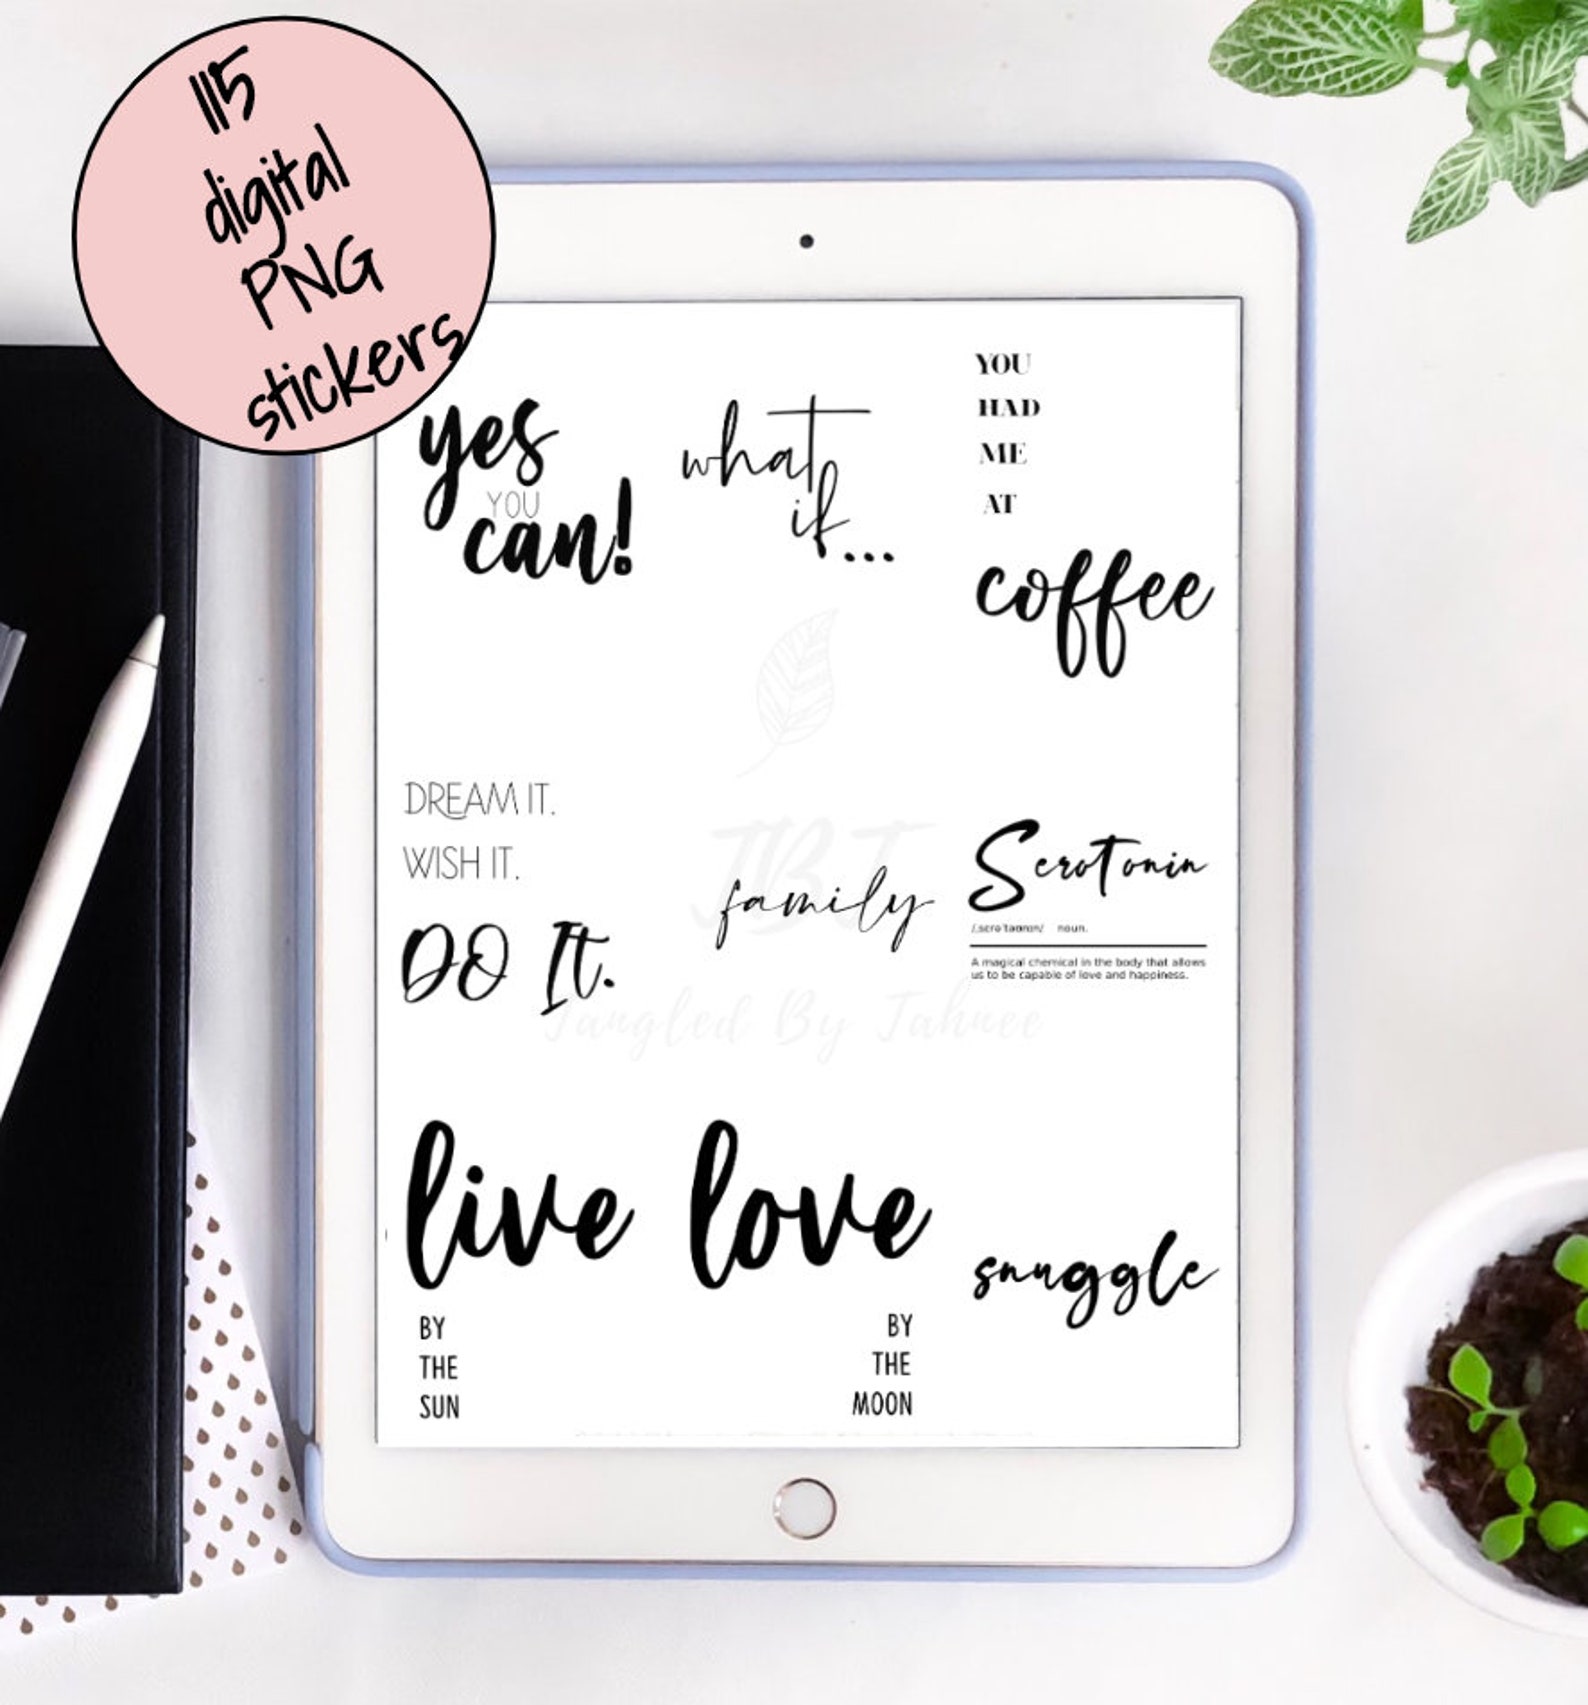 115
digital
PNG
stickers
yes
YOU
can!
what
if...
YOU
HAD
ME
AT
coffee
DREAM IT.
WISH IT.
DO It.
JBJ
family
Serotonin
noun.
A magical chemical in the body that allows
us to be capable of love and happiness.
Tangled By Tahnee
live
BY
THE
SUN
love
BY
THE
MOON
snuggle